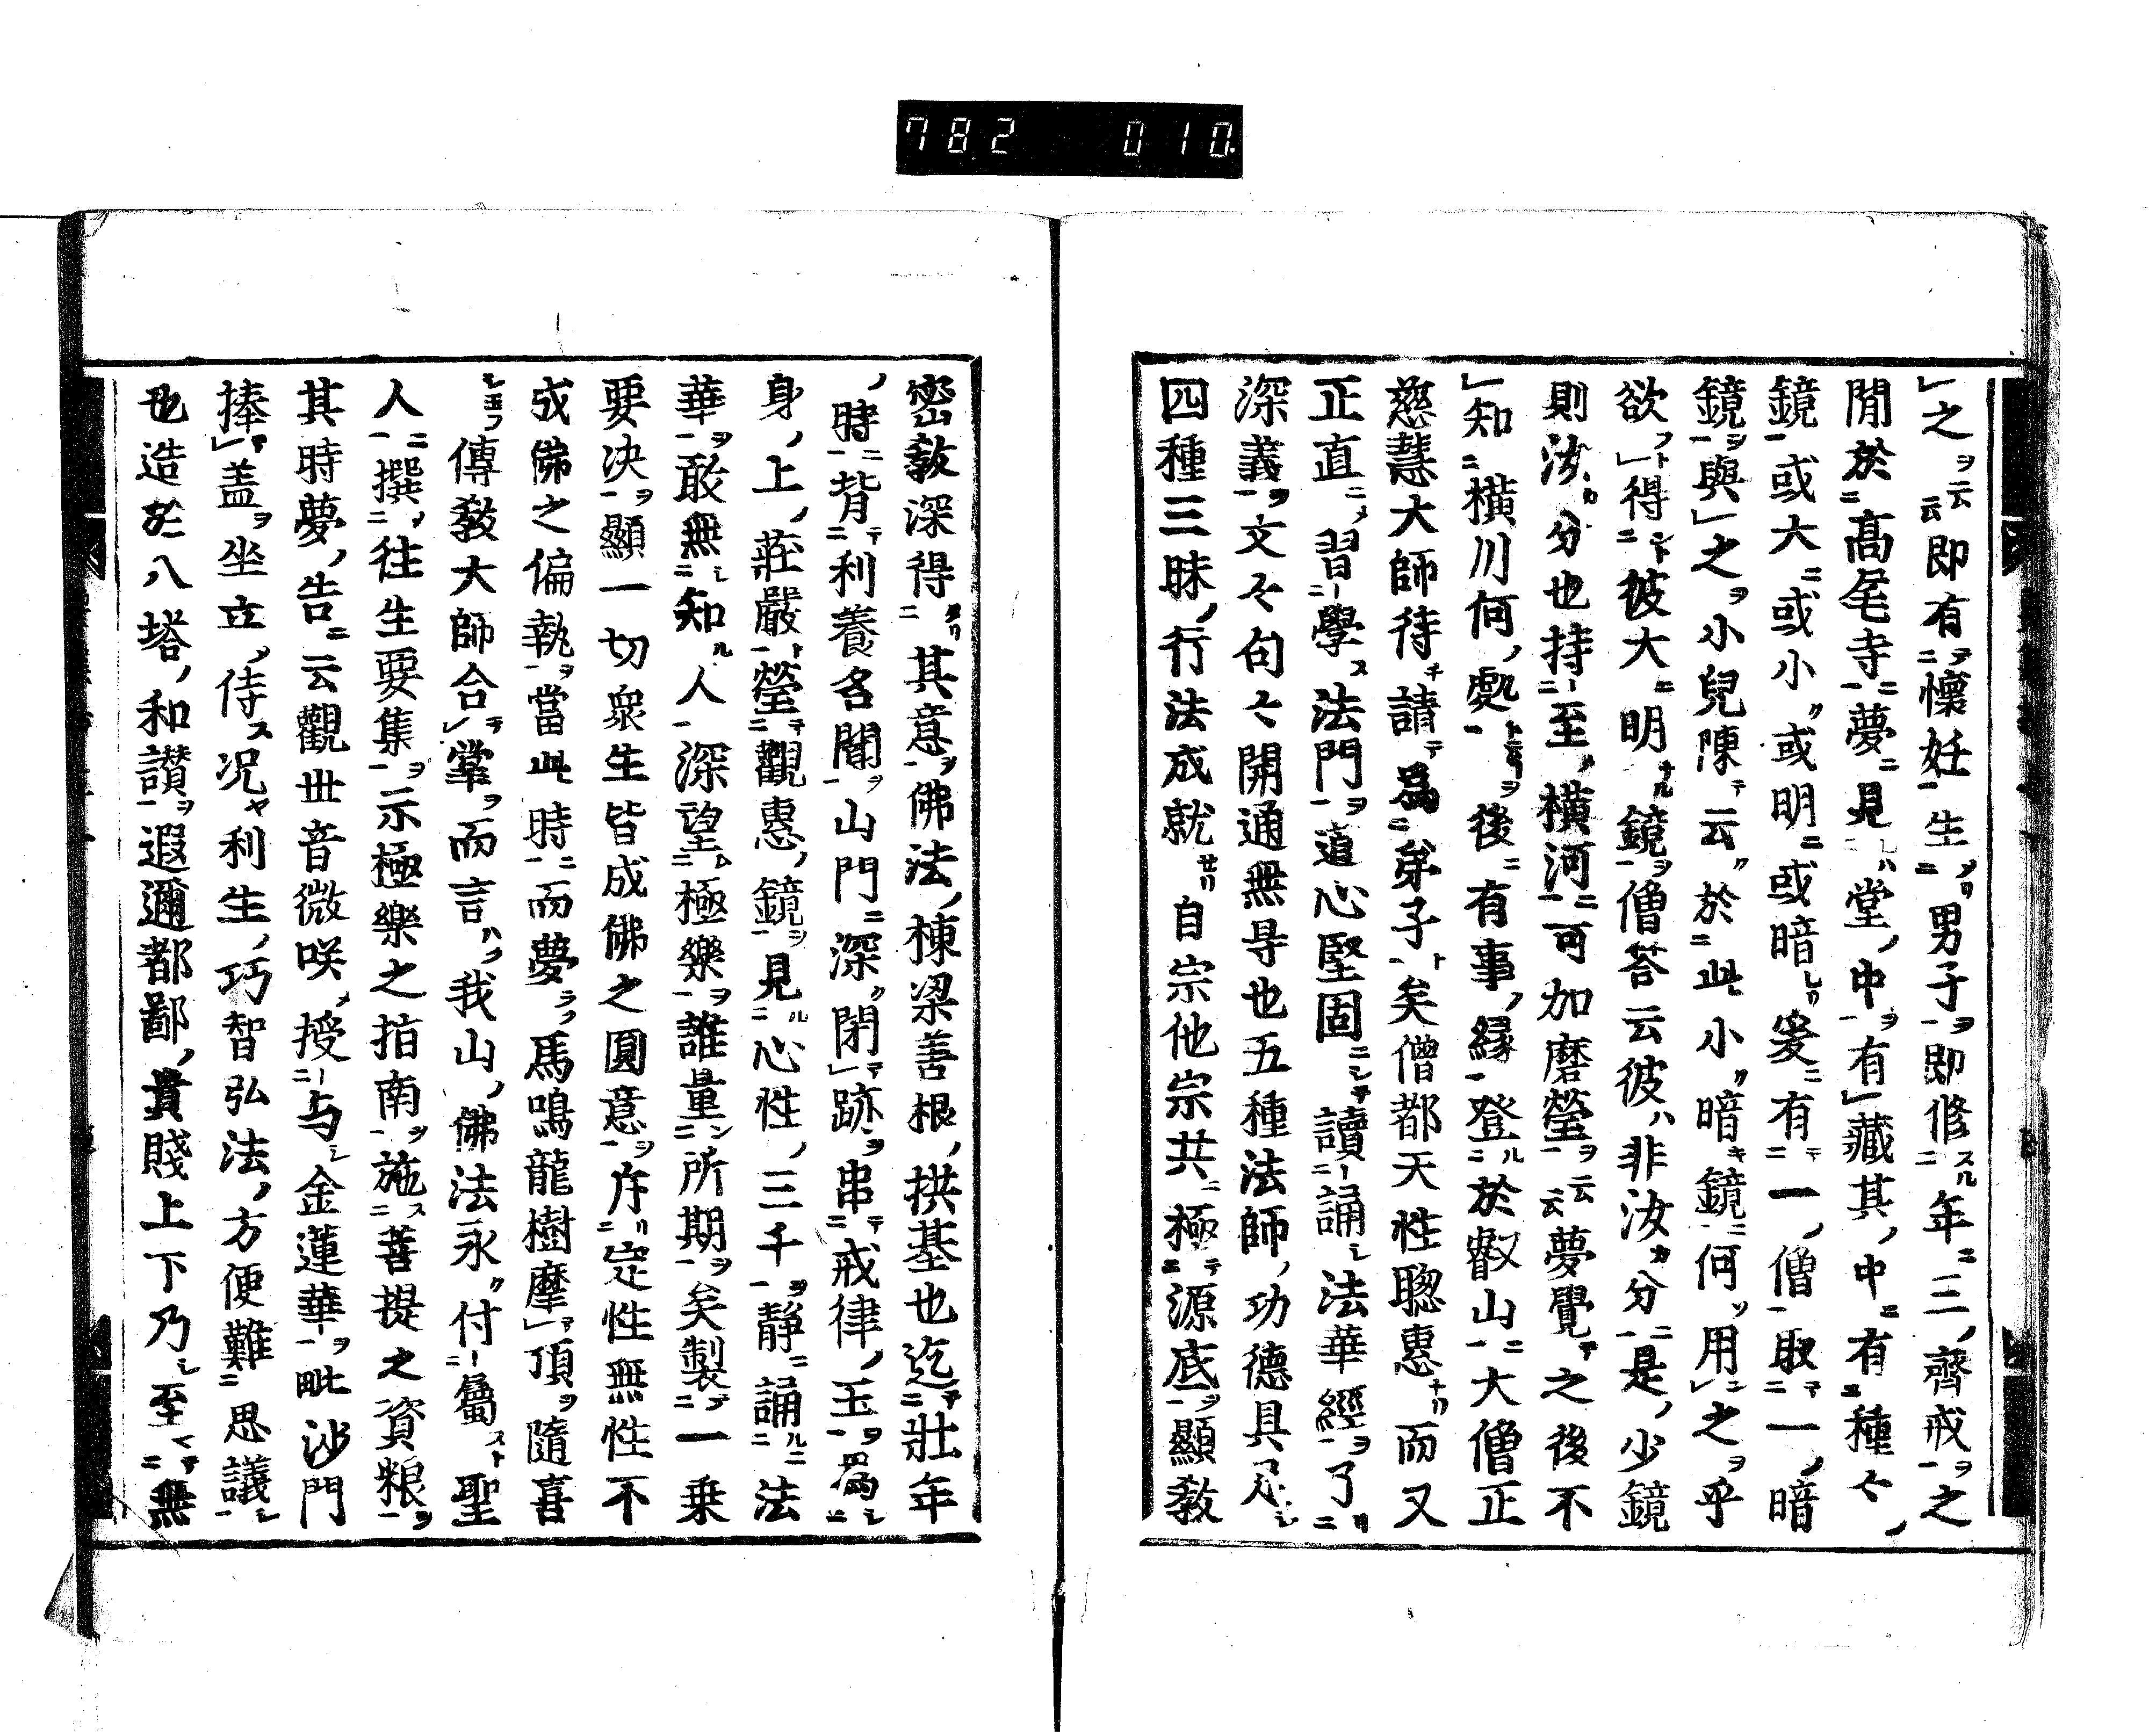 782 010
之云云即有懷妊生男子即修年三齊戒之
間於高尾寺夢見堂中有藏其中有種々
鏡或大或小或明或暗爰有一僧取一暗
鏡與之小兒陳云於此小暗鏡何用之乎
欲得彼大明鏡僧答云彼非汝分是少鏡
則汝分也持至橫河可加磨瑩云云夢覺之後不
知橫川何處後有事緣登於叡山大僧正
慈慧大師待請爲弟子矣僧都天性聰惠而又
正直習學法門道心堅固讀誦法華經了
深義文々句々開通無导也五種法師功德具足
四種三昧行法成就自宗他宗共極源底顯教
密教深得其意佛法棟梁善根拱基也迄壯年
時背利養名聞山門深閉跡串戒律玉爲
身上莊嚴瑩觀惠鏡見心性三千靜誦法
華敢無知人深望極樂誰量所期矣製一乗
要决顯一切衆生皆成佛之圓意斥定性無性不
成佛之偏執當此時而夢馬鳴龍樹摩頂隨喜
傳教大師合掌而言我山佛法永付屬聖
人撰往生要集示極樂之指南施菩提之資粮
其時夢告云觀世音微咲授与金蓮華毗沙門
捧盖坐立侍况利生巧智弘法方便難思議
也造於八塔和讃遐邇都鄙貴賤上下乃至無